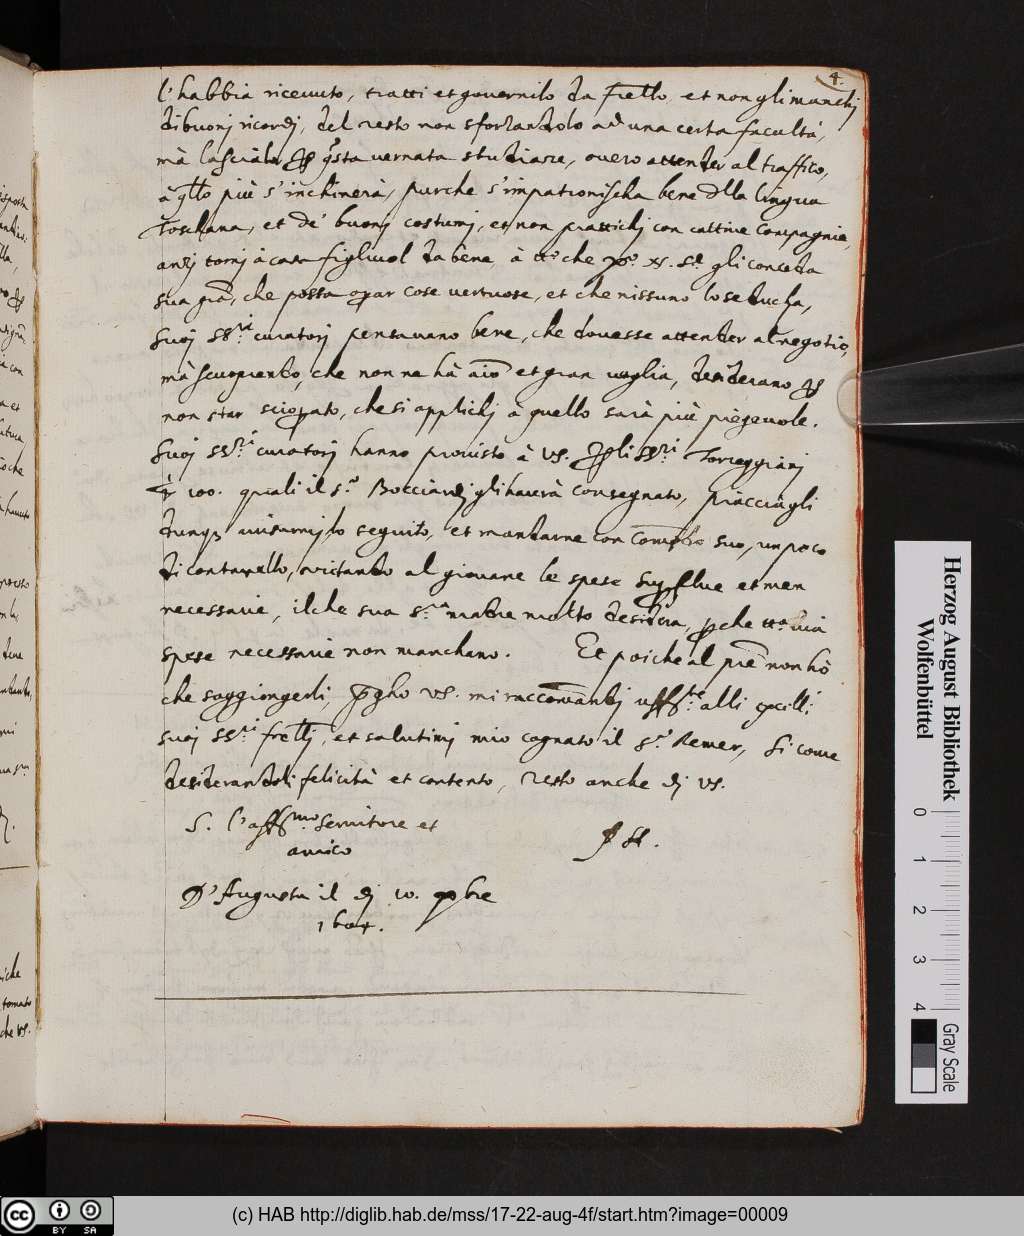 4.
l'habbia riceuuto, tratti et governilo da frello, et non gli manchj
di buonj ricordj, del resto non sforzandolo ad una certa facultà,
mà lasciale p qsta vernata studiare, overo attender al traffico,
à qllo più s'inchinerà, purche s'impatronischa bene dlla lingua
Toschana, et de' buonj costumj, et non prattichj con cattive compagnie,
anzj tornj à casa figliuol da bene, à che gli conceda
sua gra, che possa oprar cose vertuose, et che nissuno lo seducha,
suoj SSri curatorj pensavano bene, che dovesse attender al negotio,
mà scuoprendo, che non ne hà aio et gran voglia, desiderano p
non star sciopato, che si applichj à quello sarà più piegevole.
Suoj SSri curatorj hanno provisto à VS. p gli SSri Torreggianj
100. quali il Sr Bocciardj gli haverà consegnato, piacciagli
dunq avisarmj lo seguito, et mandarne con suo, un poco
di contarello, vietando al giovane le spese supflue et men
necessarie, il che sua Sra madre molto desidera, pche tta via
spese necessarie non manchano. Et poiche al pnte non hò
che soggiongerli, pgho VS. mi raccomandj affte alli
suoj SSri frellj, et salutimj mio cognato il Sr Remer, si come
desiderandoli felicità et contento, resto anche dj VS.
S. l'affmo servitore et
amico
P H.
D'Augusta il dj 10. bre
1604.
Herzog August Bibliothek
Wolfenbüttel
0 1 2 3 4
Gray Scale
cc BY SA
(c) HAB http://diglib.hab.de/mss/17-22-aug-4f/start.htm?image=00009